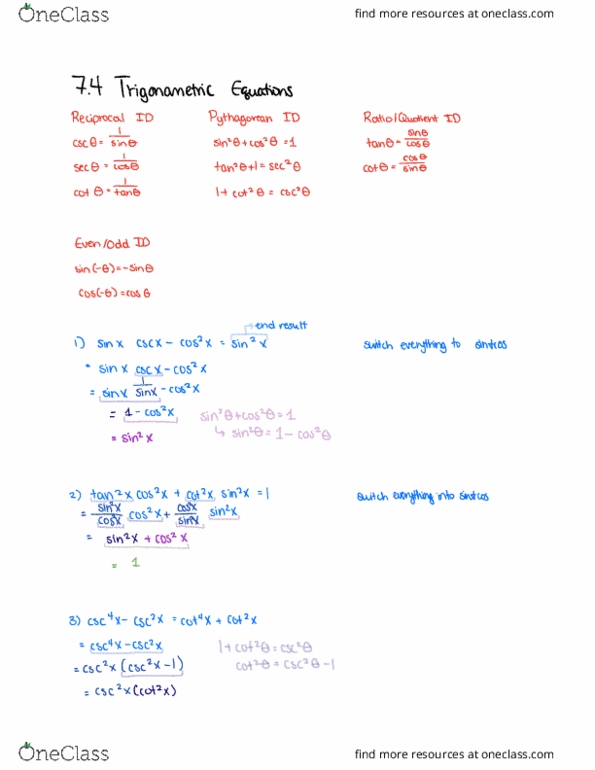 OneClass
find more resources at oneclass.com
7.4 Trigonametric Equations
Reciprocal ID
cscθ = 1/sinθ
secθ = 1/cosθ
cot θ = 1/tanθ
Pythagorean ID
sin²θ + cos²θ = 1
tan²θ + 1 = sec²θ
1 + cot²θ = csc²θ
Ratio/Quotient ID
tanθ = sinθ/cosθ
cotθ = cosθ/sinθ
Even/Odd ID
sin(-θ) = -sinθ
cos(-θ) = cos θ
→ end result
1) sinx cscx - cos²x = sin²x
switch everything to sin+cos
• sin x cscx - cos²x
= sinx 1/sinx - cos²x
= 1 - cos²x
sin²θ + cos²θ = 1
= sin²x
↳ sin²θ = 1 - cos²θ
2) tan²x cos²x + cot²x sin²x = 1
switch everything into sin+cos
= sin²x/cosx cos²x + cosx/sinx sin²x
= sin²x + cos²x
= 1
3) csc⁴x - csc²x = cot⁴x + cot²x
= csc⁴x - csc²x
1 + cot²θ = csc²θ
= csc²x (csc²x - 1)
cot²θ = csc²θ - 1
= csc²x (cot²x)
OneClass
find more resources at oneclass.com